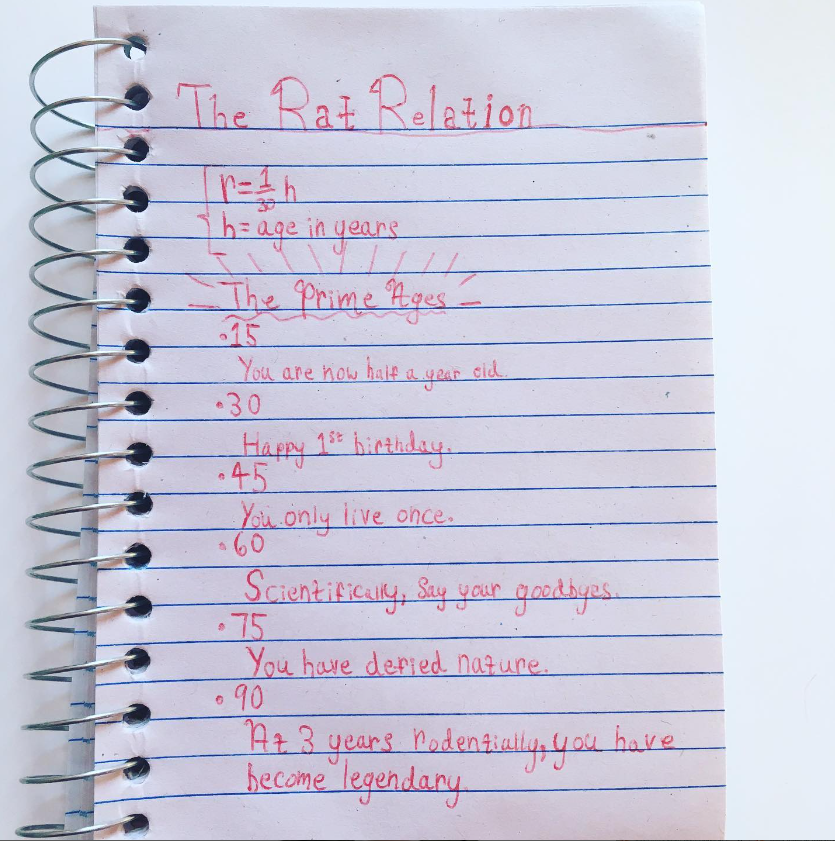 The Rat Relation
r=1/30 h
h= age in years
The Prime Ages
•15
You are now half a year old.
•30
Happy 1st birthday.
•45
You only live once.
•60
Scientifically, Say your goodbyes.
•75
You have defied nature.
•90
At 3 years rodentially, you have
become legendary.